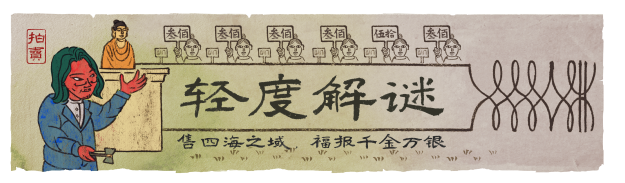 拍卖
叁佰 叁佰 叁佰 叁佰 伍拾 叁佰
轻度解谜
售四海之域 福报千金万银